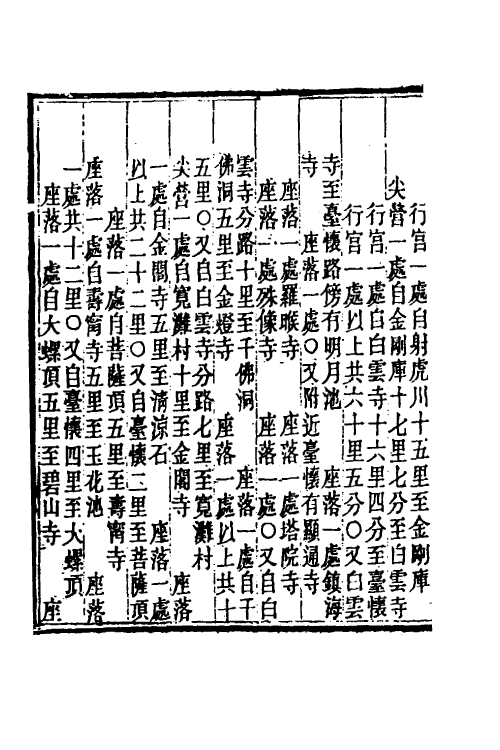 行宫一處自射虎川十五里至金剛庫
尖營一處自金剛庫十七里七分至白雲寺
行宫一處自白雲寺十六里四分至臺懷
行宫一處以上共六十里五分〇又白雲
寺至臺懷路傍有明月池　座落一處鎮海
寺　座落一處〇又附近臺懷有顯通寺
座落一處羅睺寺　座落一處塔院寺
座落一處殊像寺　座落一處〇又自白
雲寺分路十里至千佛洞　座落一處自千
佛洞五里至金燈寺　座落一處以上共十
五里〇又自白雲寺分路七里至寛灘村
尖營一處自寛灘村十里至金閣寺　座落
一處自金閣寺五里至清涼石　座落一處
以上共二十二里〇又自臺懷二里至菩薩頂
座落一處自菩薩頂五里至壽甯寺
座落一處自壽甯寺五里至玉花池　座落
一處共十二里〇又自臺懷四里至大螺頂
座落一處自大螺頂五里至碧山寺　座